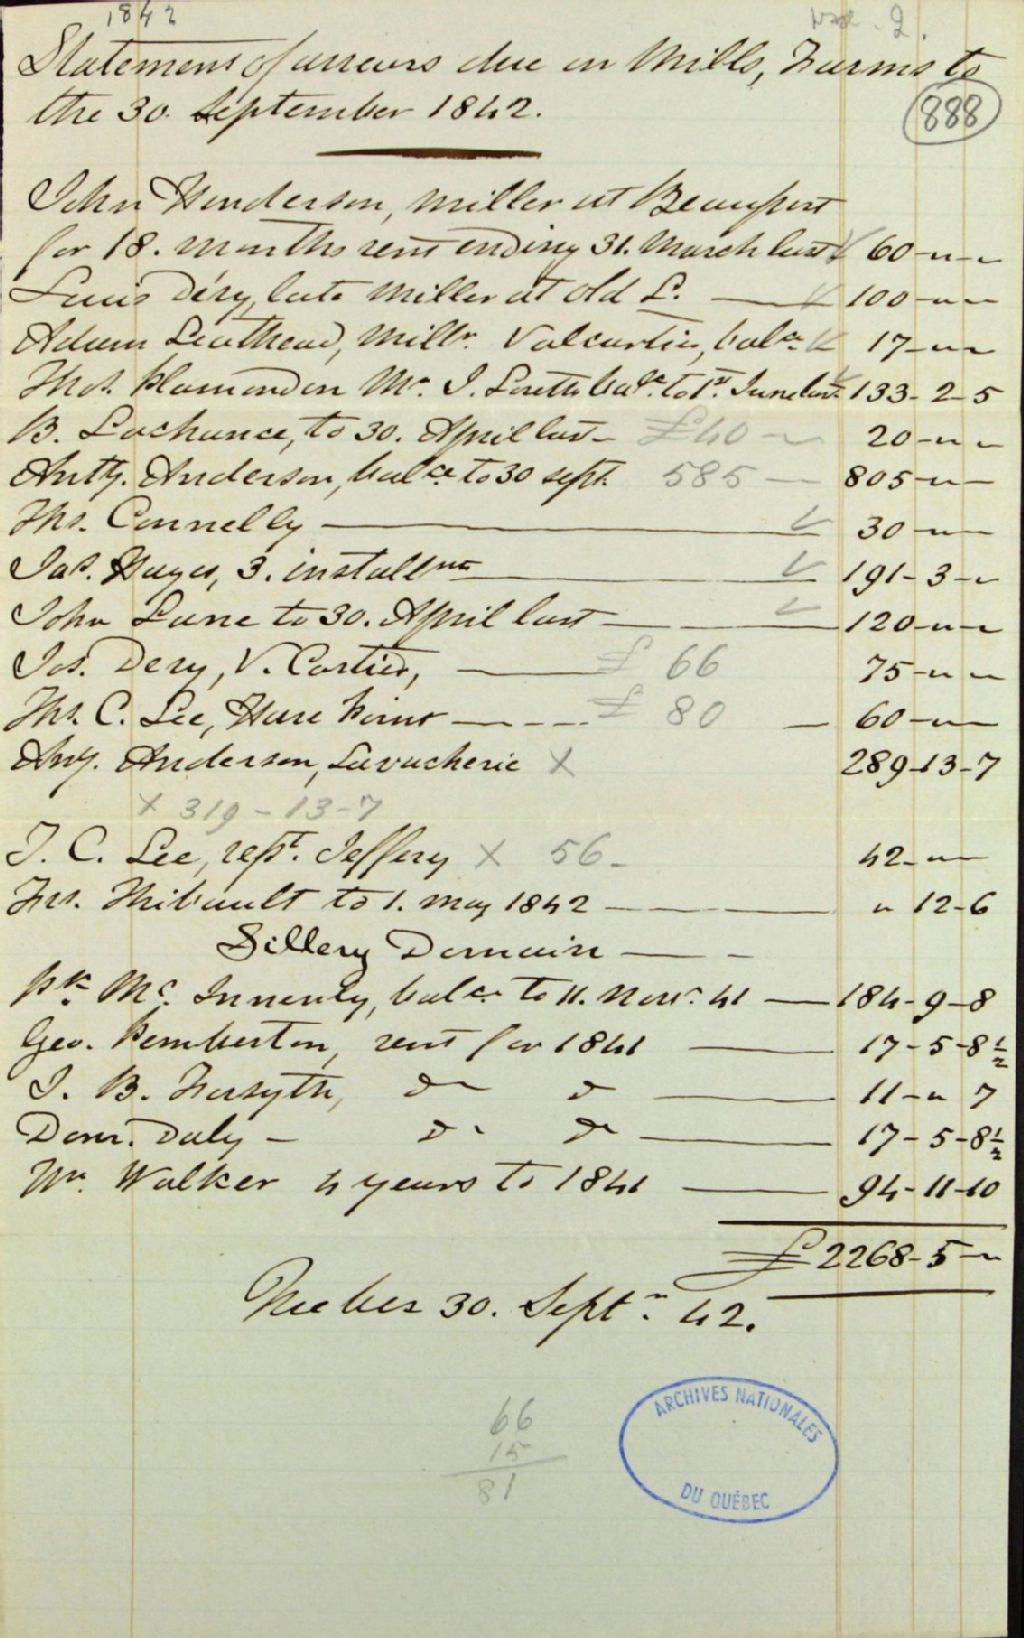 1842
No. 2.
Statement of arrears due on Mills, Farms to
888
the 30. September 1842.
John Henderson, miller at Beauport
for 18. months rent ending 31. March last 60-"-"
Louis Déry, late miller at old L. 100-"-"
Adam Leathead, millr. Valcartier, balce. 17-"-"
Thos. Plamondon Mr. J. Lorette balce. to 1st. June last 133-2-5
B. Lachance, to 30. April last - £40 - 20-"-"
Anty. Anderson, balce to 30 sept. 585 - 805-"-
Ths. Connelly 30-"-
Jas. Hayes, 3. installmts 191-3-"
John Lane to 30. April last 120-"-"
Jos. Dery, V. Cartier, £ 66 75-"-"
Ths. C. Lee, Hare Point £ 80 - 60-"-
Any. Anderson, Lavacherie X 289-13-7
X 319-13-7
T. C. Lee, rept. Jeffery X 56- 42-"-
Frs. Thibault to 1. may 1842 " 12-6
Sillery Domain
Pk. Mc. Innenly, balce. to 11. Novr. 41 184-9-8
Geo. Pemberton, rent for 1841 17-5-8½
J. B. Forsyth, do do 11-" 7
Domk. Daly - do do 17-5-8½
Wm. Walker 4 years to 1841 94-11-10
£2268-5-"
Quebec 30. Sept. 42.
66
15
81
ARCHIVES NATIONALES
DU QUÉBEC